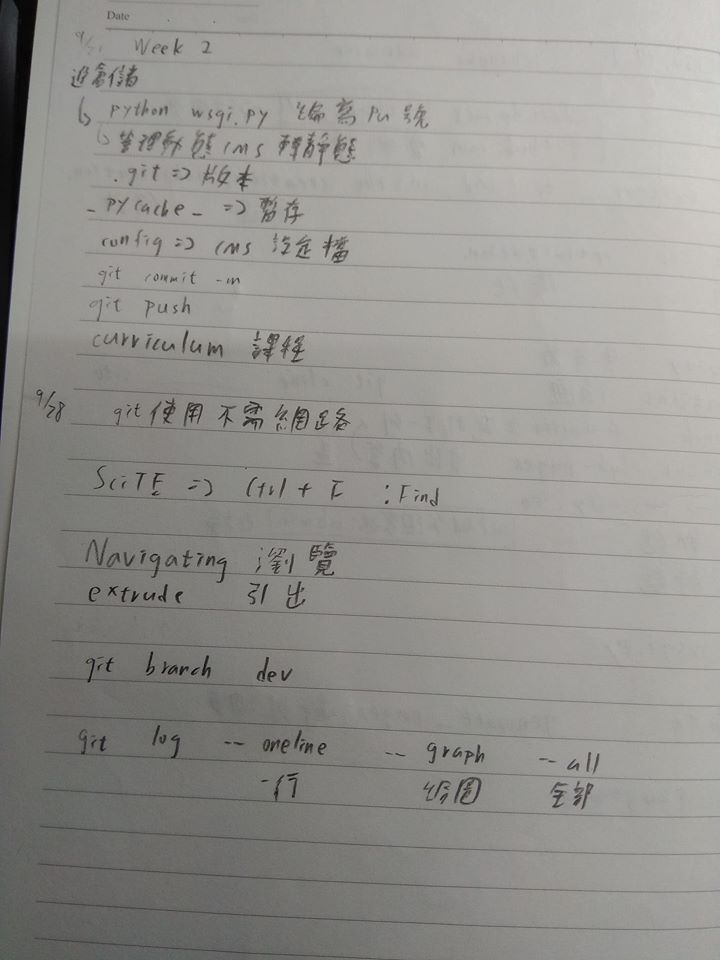 Date
Week 2
python wsgi.py
管理動態 cms 轉靜態
.git => 版本
_pycache_ => 暫存
config => cms 設定檔
git commit -m
git push
curriculum 課程
9/28 git 使用不需網路
SciTE => Ctrl + F : Find
Navigating 瀏覽
extrude 引出
git branch dev
git log --oneline --graph --all
一行 繪圖 全部